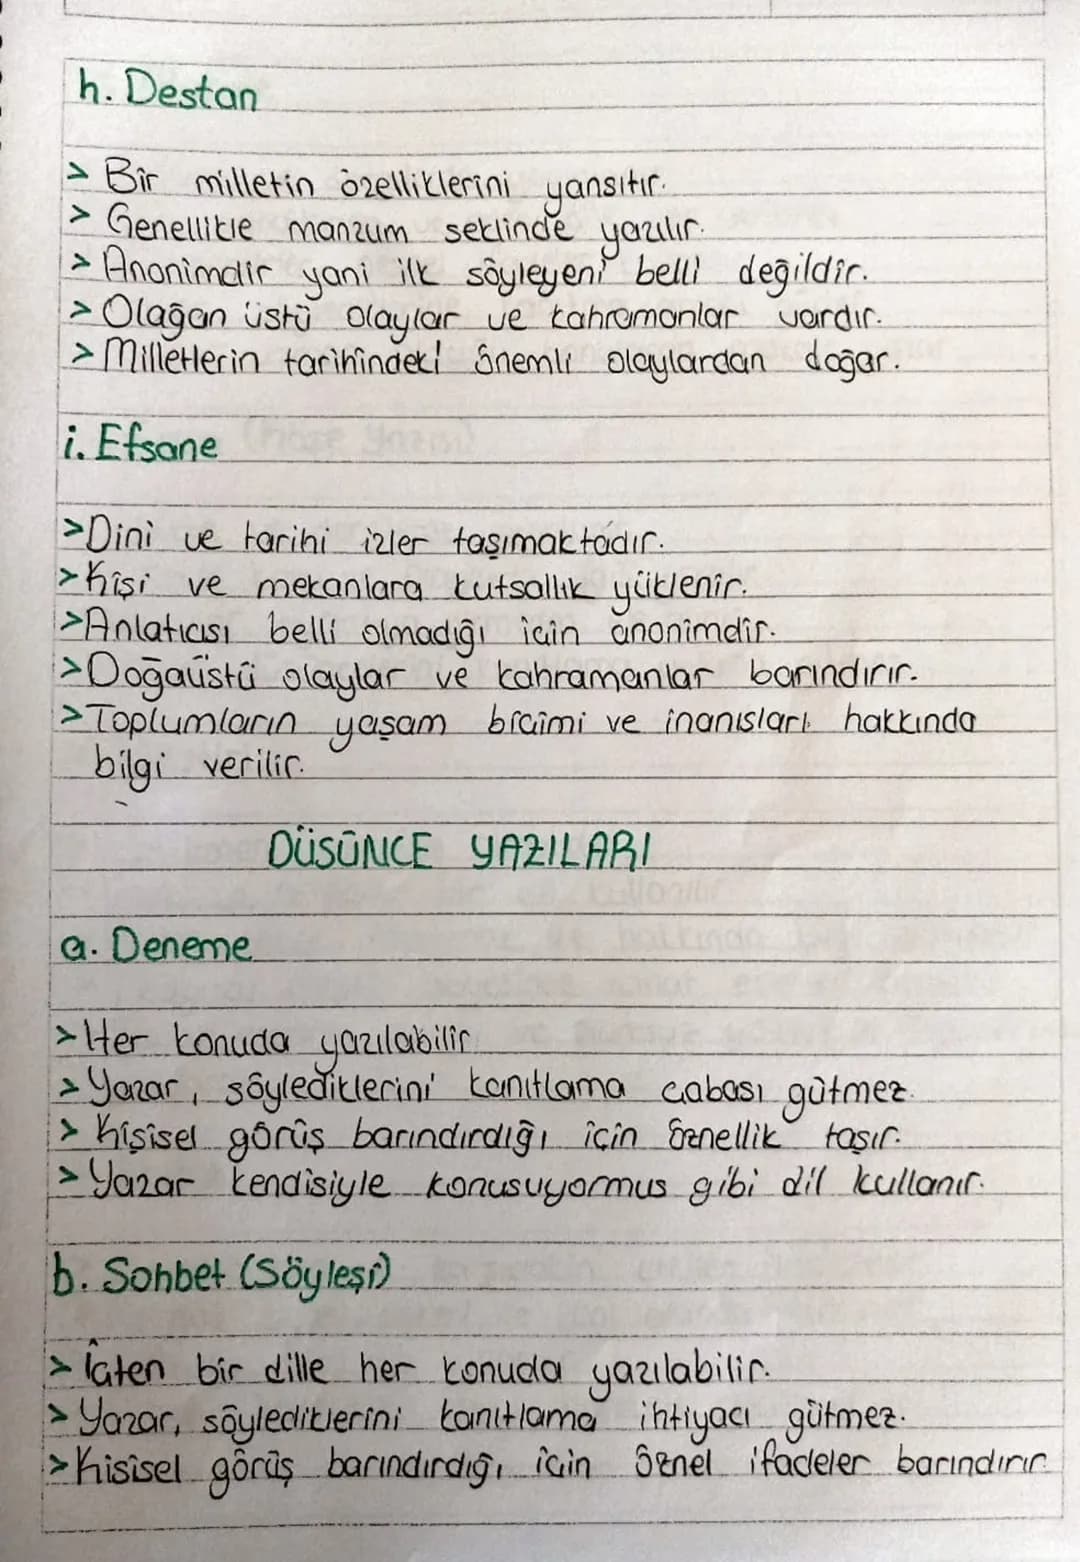 h. Destan
> Bir milletin özelliklerini yansıtır.
> Genellikle manzum seklinde yazılır.
> Anonimdir yani ilk söyleyeni belli değildir.
> Olağan üstü olaylar ve kahramanlar vardır.
> Milletlerin tarihindeki önemli olaylardan doğar.
i. Efsane
> Dini ve tarihi izler taşımaktadır.
> Kişi ve mekanlara kutsallık yüklenir.
> Anlatıcısı belli olmadığı için anonimdir.
> Doğaüstü olaylar ve kahramanlar barındırır.
> Toplumların yaşam biçimi ve inanısları hakkında
bilgi verilir.
DÜSÜNCE YAZILARI
a. Deneme
> Her konuda yazılabilir.
> Yazar, söylediklerini kanıtlama çabası gütmez.
> Kişisel görüş barındırdığı için öznellik taşır.
> Yazar kendisiyle konusuyormus gibi dil kullanır.
b. Sohbet (Söyleşi)
> İçten bir dille her konuda yazılabilir.
> Yazar, söylediklerini kanıtlama ihtiyacı gütmez.
> Kisisel görüş barındırdığı için öznel ifadeler barındırır